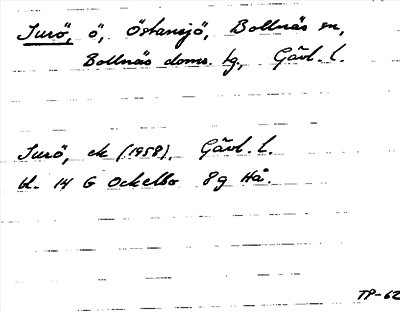 Surö, ö, Östansjö, Bollnäs sn,
Bollnäs doms. tg, Gävl. l.
Surö, ek (1958), Gävl. l.
bl. 14 G Ockelbo 8g Hå.
TP-62